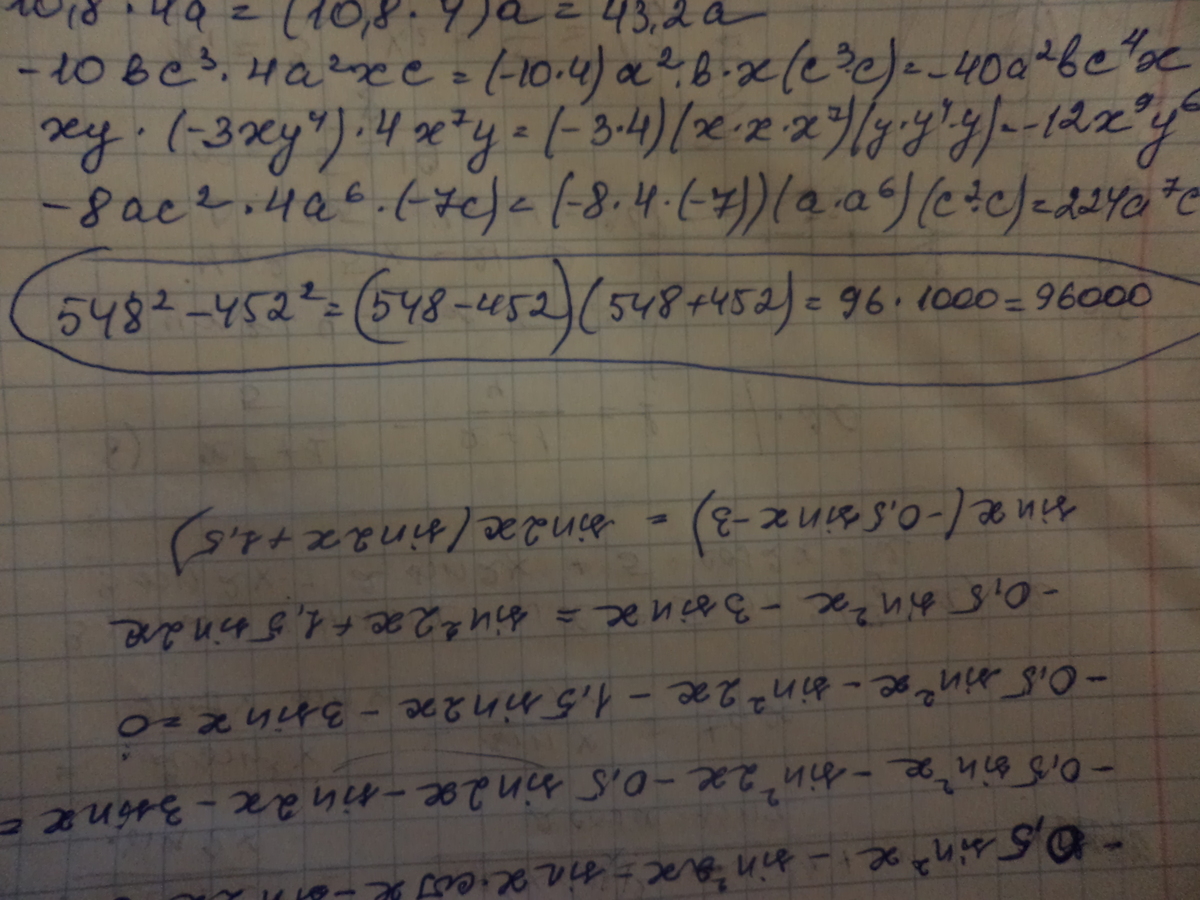 10,8·4a = (10,8·4)a = 43,2a
-10bc³·4a²xc = (-10·4)a²·b·x(c³·c) = -40a²bc⁴x
xy·(-3xy⁴)·4x⁷y = (-3·4)(x·x·x⁷)(y·y⁴·y) = -12x⁹y⁶
-8ac²·4a⁶·(-7c) = (-8·4·(-7))(a·a⁶)(c²·c) = 224a⁷c
548² - 452² = (548-452)(548+452) = 96·1000 = 96000
sinx(-0,5sinx-3) = sin2x(sin2x+1,5)
-0,5sin²x - 3sinx = sin²2x+1,5sin2x
-0,5sin²x - sin²2x - 1,5sin2x - 3sinx = 0
-0,5sin²x - sin²2x - 0,5sin2x - sin2x - 3sinx =
-0,5sin²x - sin²2x - sinx·cosx - sin2x